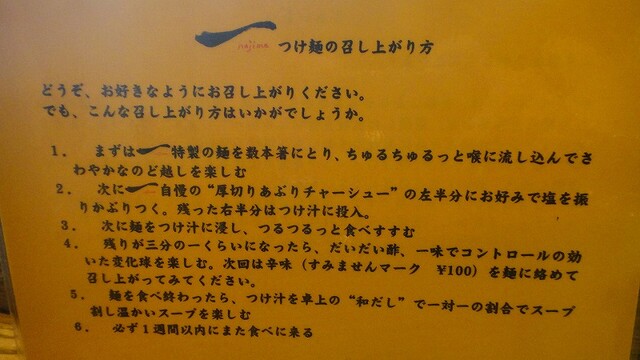 一 nojima つけ麺の召し上がり方
どうぞ、お好きなようにお召し上がりください。
でも、こんな召し上がり方はいかがでしょうか。
1． まずは一特製の麺を数本箸にとり、ちゅるちゅるっと喉に流し込んでさ
わやかなのど越しを楽しむ
2． 次に一自慢の“厚切りあぶりチャーシュー”の左半分にお好みで塩を振
りかぶりつく。残った右半分はつけ汁に投入。
3． 次に麺をつけ汁に浸し、つるつるっと食べすすむ
4． 残りが三分の一くらいになったら、だいだい酢、一味でコントロールの効
いた変化球を楽しむ。次回は辛味（すみませんマーク ¥100）を麺に絡めて
召し上がってみてください。
5． 麺を食べ終わったら、つけ汁を卓上の“和だし”で一対一の割合でスープ
割し温かいスープを楽しむ
6． 必ず1週間以内にまた食べに来る